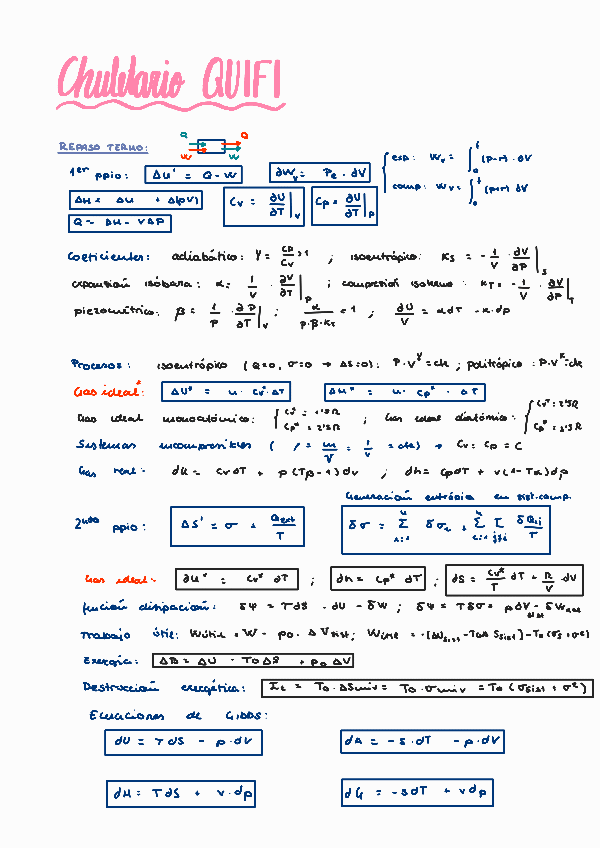 Chuletario QUIFI
REPASO TERMO: Q W Q W
1er ppio: ΔU' = Q - W ∂Wv = Pe · dV { exp: Wv = ∫ (p-r) · dV
comp: Wv = ∫ (p+r) dV
ΔH = ΔU + Δ(pV) Cv = ∂U/∂T|v Cp = ∂U/∂T|p
Q = ΔH - VΔP
Coeficientes: adiabático: γ = Cp/Cv > 1 ; isoentrópico: Ks = - 1/V · ∂V/∂P|s
expansión isóbara: α = 1/V · ∂V/∂T|p ; compresión isotermo: KT = - 1/V · ∂V/∂P|T
piezométrico: β = 1/P · ∂P/∂T|v ; α/(p·β·KT) = 1 ; ∂U/V = α dT - K · dp
Procesos: isoentrópico (Q=0, σ=0 → ΔS=0): P·V^γ = cte ; politrópico: P·V^k = cte
Gas ideal* ΔU* = n · Cv* · ΔT ΔH* = n · Cp* · ΔT
Gas ideal monoatómico: { Cv* = 1'5R Cp* = 2'5R ; Gas ideal diatómico: { Cv* = 2'5R Cp* = 3'5R
Sistemas incompresibles ( ρ = m/V = 1/v = cte) → Cv = Cp = C
Gas real: du = Cv dT + p(Tβ-1) dv ; dh = Cp dT + v(1-Tα) dp
Generación entropía en sist. comp.
2ndo ppio: ΔS' = σ + Qext/T δσ = Σ δσi + Σ Σ δQij/T
Gas ideal: du* = Cv* dT ; dh = Cp* dT ; dS = Cv*/T dT + R/V dV
función disipación: δΨ = TdS - dU - δW ; δΨ = Tδσ = pdV - δW
Trabajo útil: Wútil = W - p0 · ΔVsist ; Wútil = -[ΔUsist - T0Δ Ssist] - T0(σs + σe)
Exergía: ΔB = ΔU - T0ΔS + p0ΔV
Destrucción exergética: IL = T0 · ΔSuniv = T0 · σuniv = T0 (σsist + σe)
Ecuaciones de Gibbs:
dU = TdS - p·dV dA = -s·dT - p·dV
dH = TdS + v·dp dG = -sdT + vdp